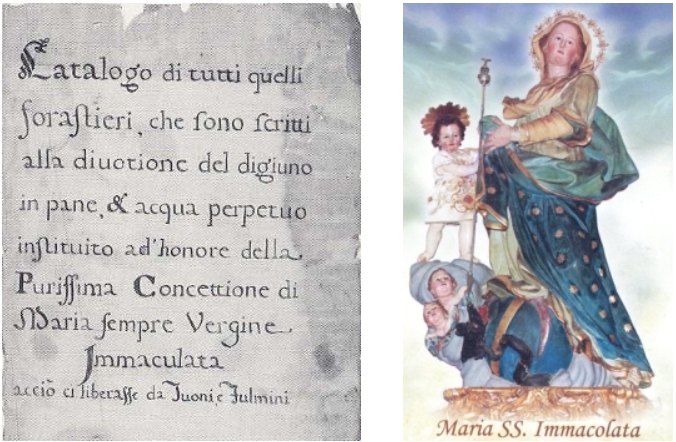 Catalogo di tutti quelli
foraſtieri, che ſono ſcritti
alla diuotione del digiuno
in pane, & acqua perpetuo
inſtituito ad'honore della
Puriſſima Concettione di
Maria ſempre Vergine
Jmmaculata
acciò ci liberaſſe da Tuoni e Fulmini
Maria SS. Immacolata